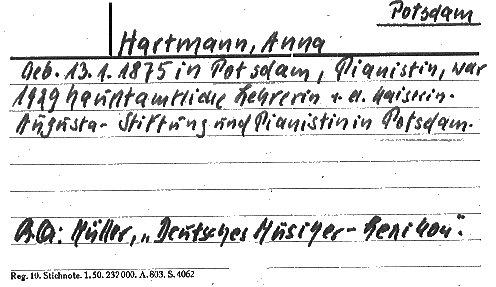 Potsdam
Hartmann, Anna
Geb. 13.1.1875 in Potsdam, Pianistin, war
1929 hauptamtliche Lehrerin a. d. Kaiserin-
Augusta-Stiftung und Pianistin in Potsdam.
B.Q: Müller, „Deutsches Musiker-Lexikon".
Reg. 19. Stichnote. 1. 50. 232 000. A. 803. S. 4062